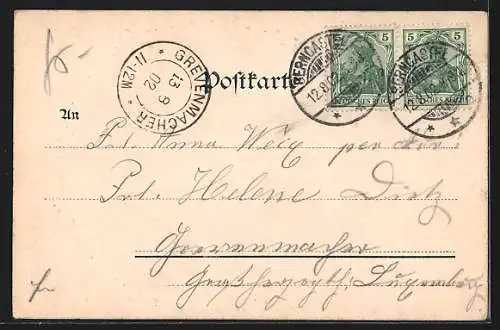 5 5
DEUTSCHES REICH
BERNCASTEL
12.8.02
GREVENMACHER
13 8
02
11-12M
Postkarte
An
Frl. Anna Weig per adr:
Frl. Helene Dietz
Grevenmacher
Großherzogth: Luxemburg